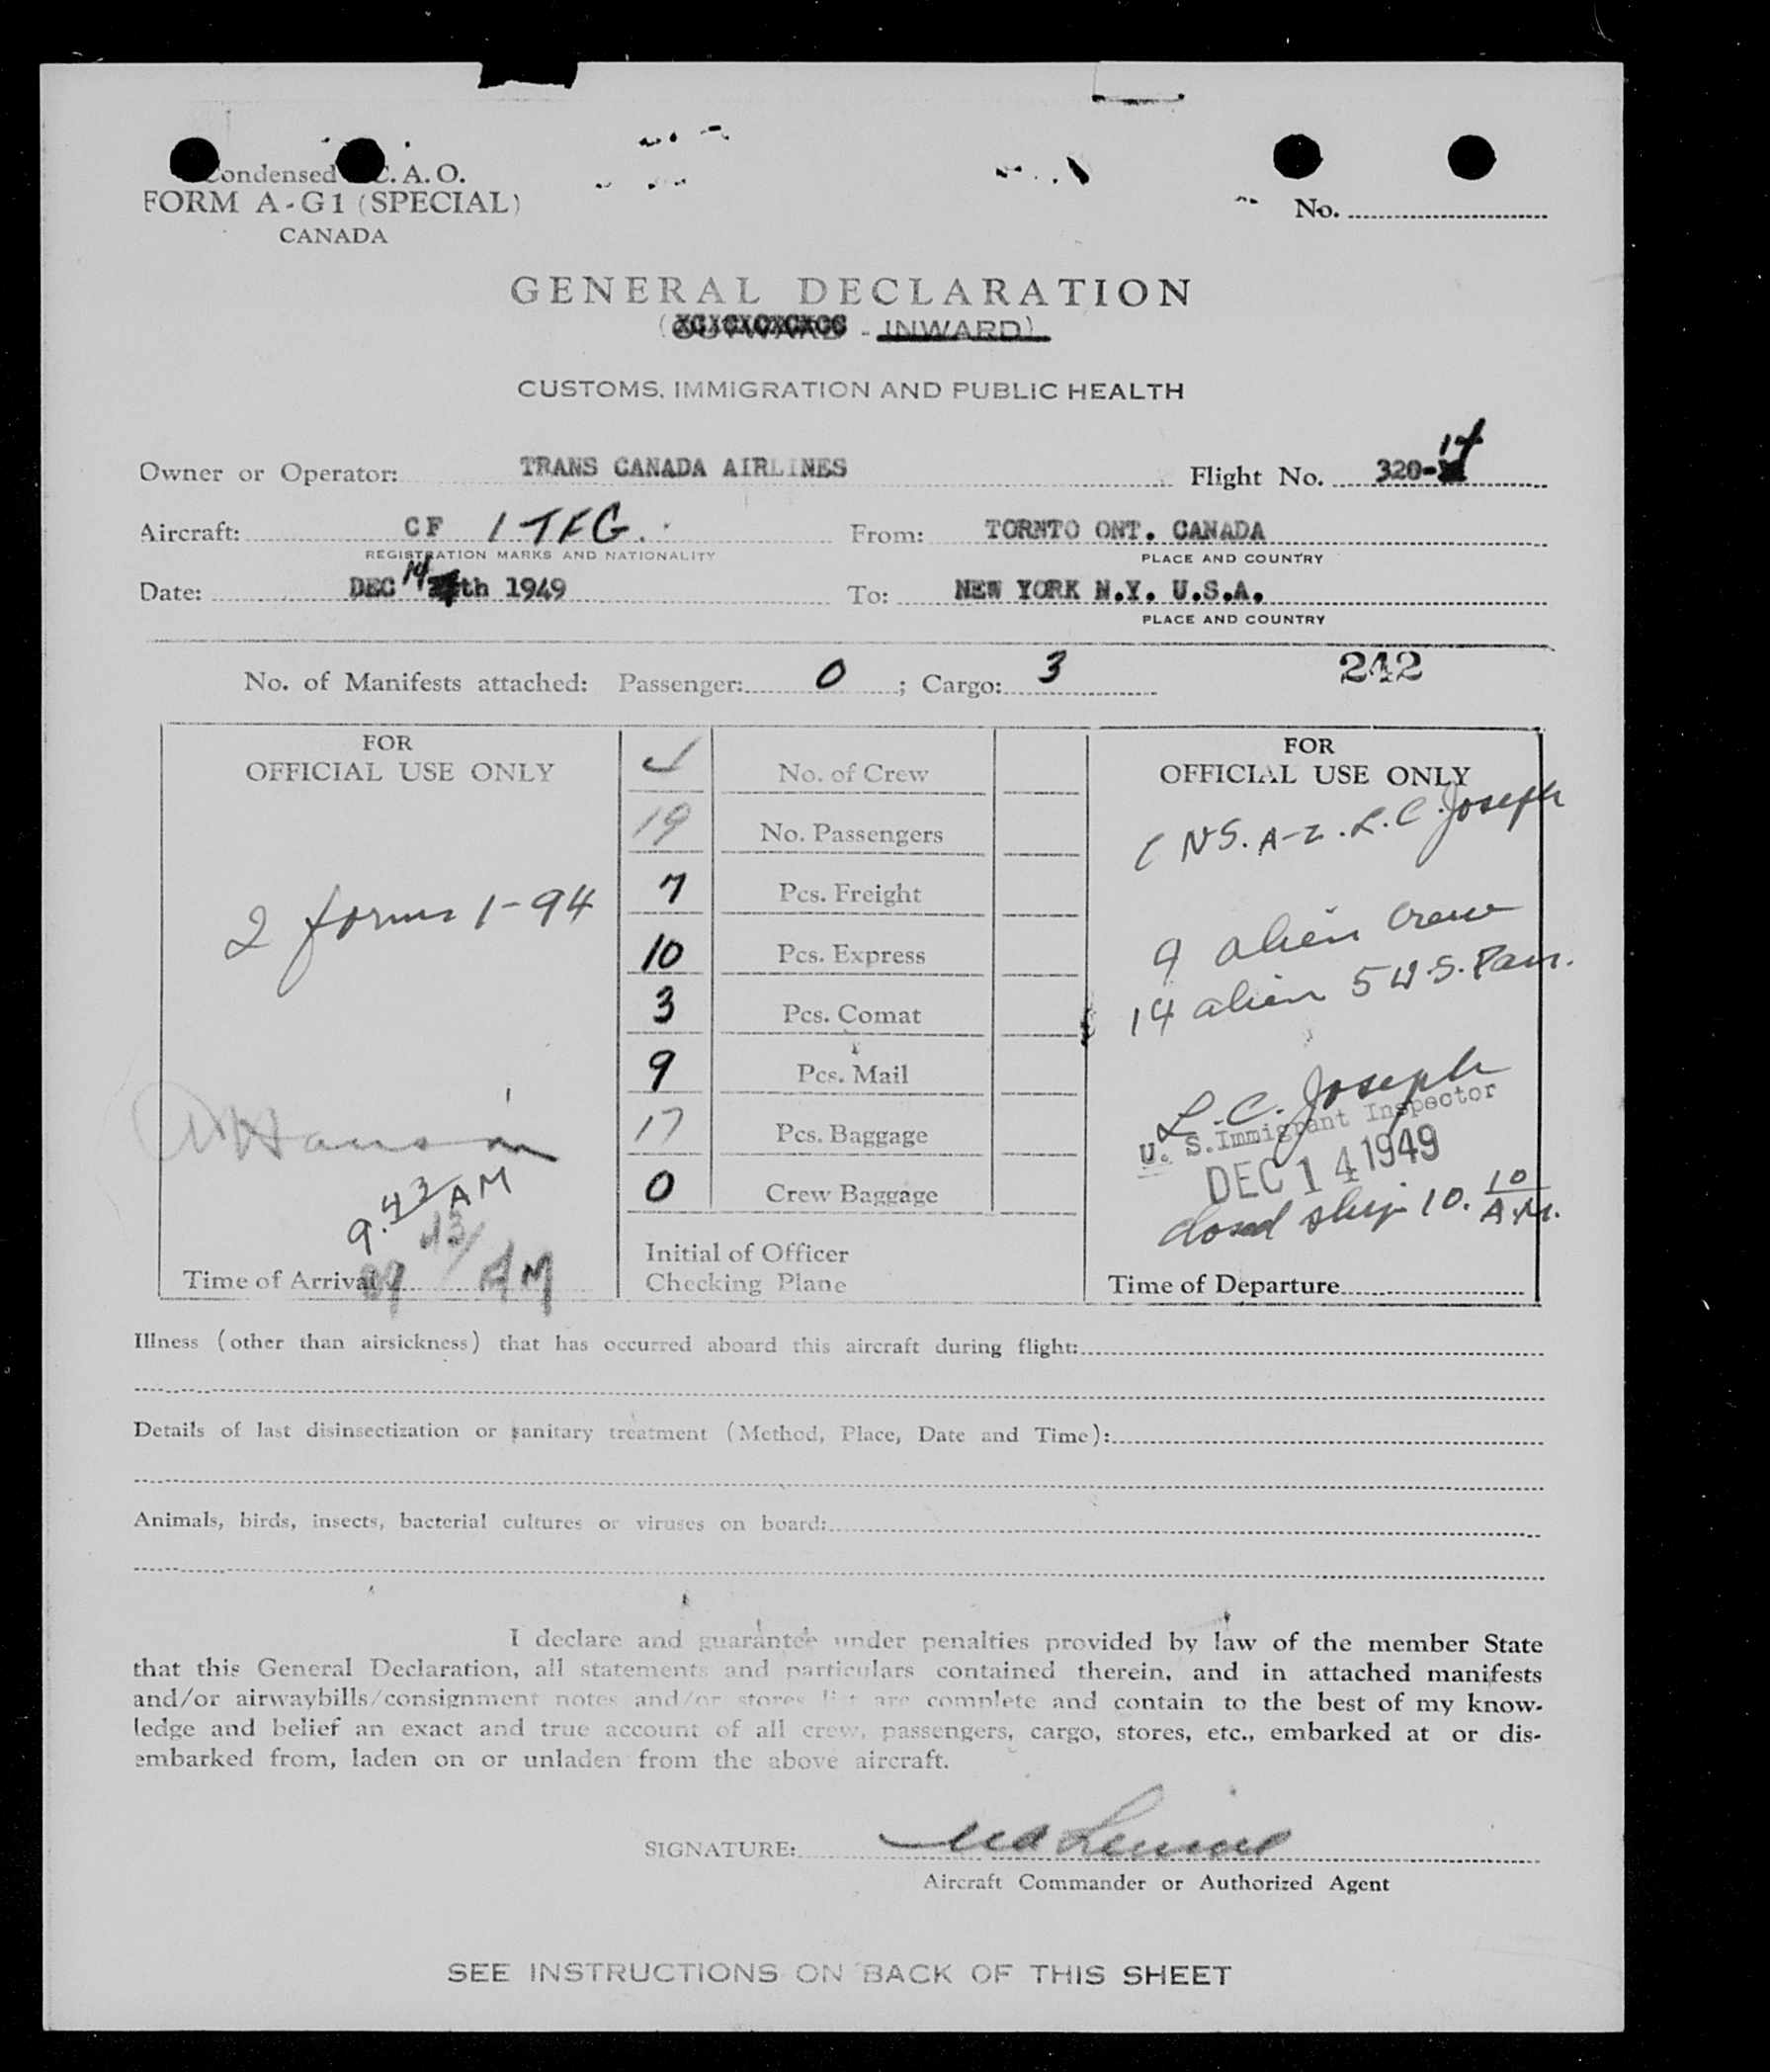 Condensed C. A. O.
FORM A-G1 (SPECIAL)
CANADA
No.
GENERAL DECLARATION
( - INWARD)
CUSTOMS, IMMIGRATION AND PUBLIC HEALTH
Owner or Operator: TRANS CANADA AIRLINES Flight No. 320-14
Aircraft: CF TFG. From: TORNTO ONT. CANADA
REGISTRATION MARKS AND NATIONALITY PLACE AND COUNTRY
Date: DEC 14th 1949 To: NEW YORK N.Y. U.S.A.
PLACE AND COUNTRY
No. of Manifests attached: Passenger: 0 ; Cargo: 3 242
FOR
OFFICIAL USE ONLY
2 forms 1-94
9.43 AM
Time of Arrival AM
No. of Crew
19 No. Passengers
7 Pcs. Freight
10 Pcs. Express
3 Pcs. Comat
9 Pcs. Mail
17 Pcs. Baggage
0 Crew Baggage
Initial of Officer
Checking Plane
FOR
OFFICIAL USE ONLY
INS. A-2. L.C. Joseph
9 alien crew
14 alien 5 U.S. Pass.
L.C. Joseph
U. S. Immigrant Inspector
DEC 14 1949
closed ship 10.10 A.M.
Time of Departure
Illness (other than airsickness) that has occurred aboard this aircraft during flight:
Details of last disinsectization or sanitary treatment (Method, Place, Date and Time):
Animals, birds, insects, bacterial cultures or viruses on board:
I declare and guarantee under penalties provided by law of the member State
that this General Declaration, all statements and particulars contained therein, and in attached manifests
and/or airwaybills/consignment notes and/or stores list are complete and contain to the best of my know-
ledge and belief an exact and true account of all crew, passengers, cargo, stores, etc., embarked at or dis-
embarked from, laden on or unladen from the above aircraft.
SIGNATURE:
Aircraft Commander or Authorized Agent
SEE INSTRUCTIONS ON BACK OF THIS SHEET